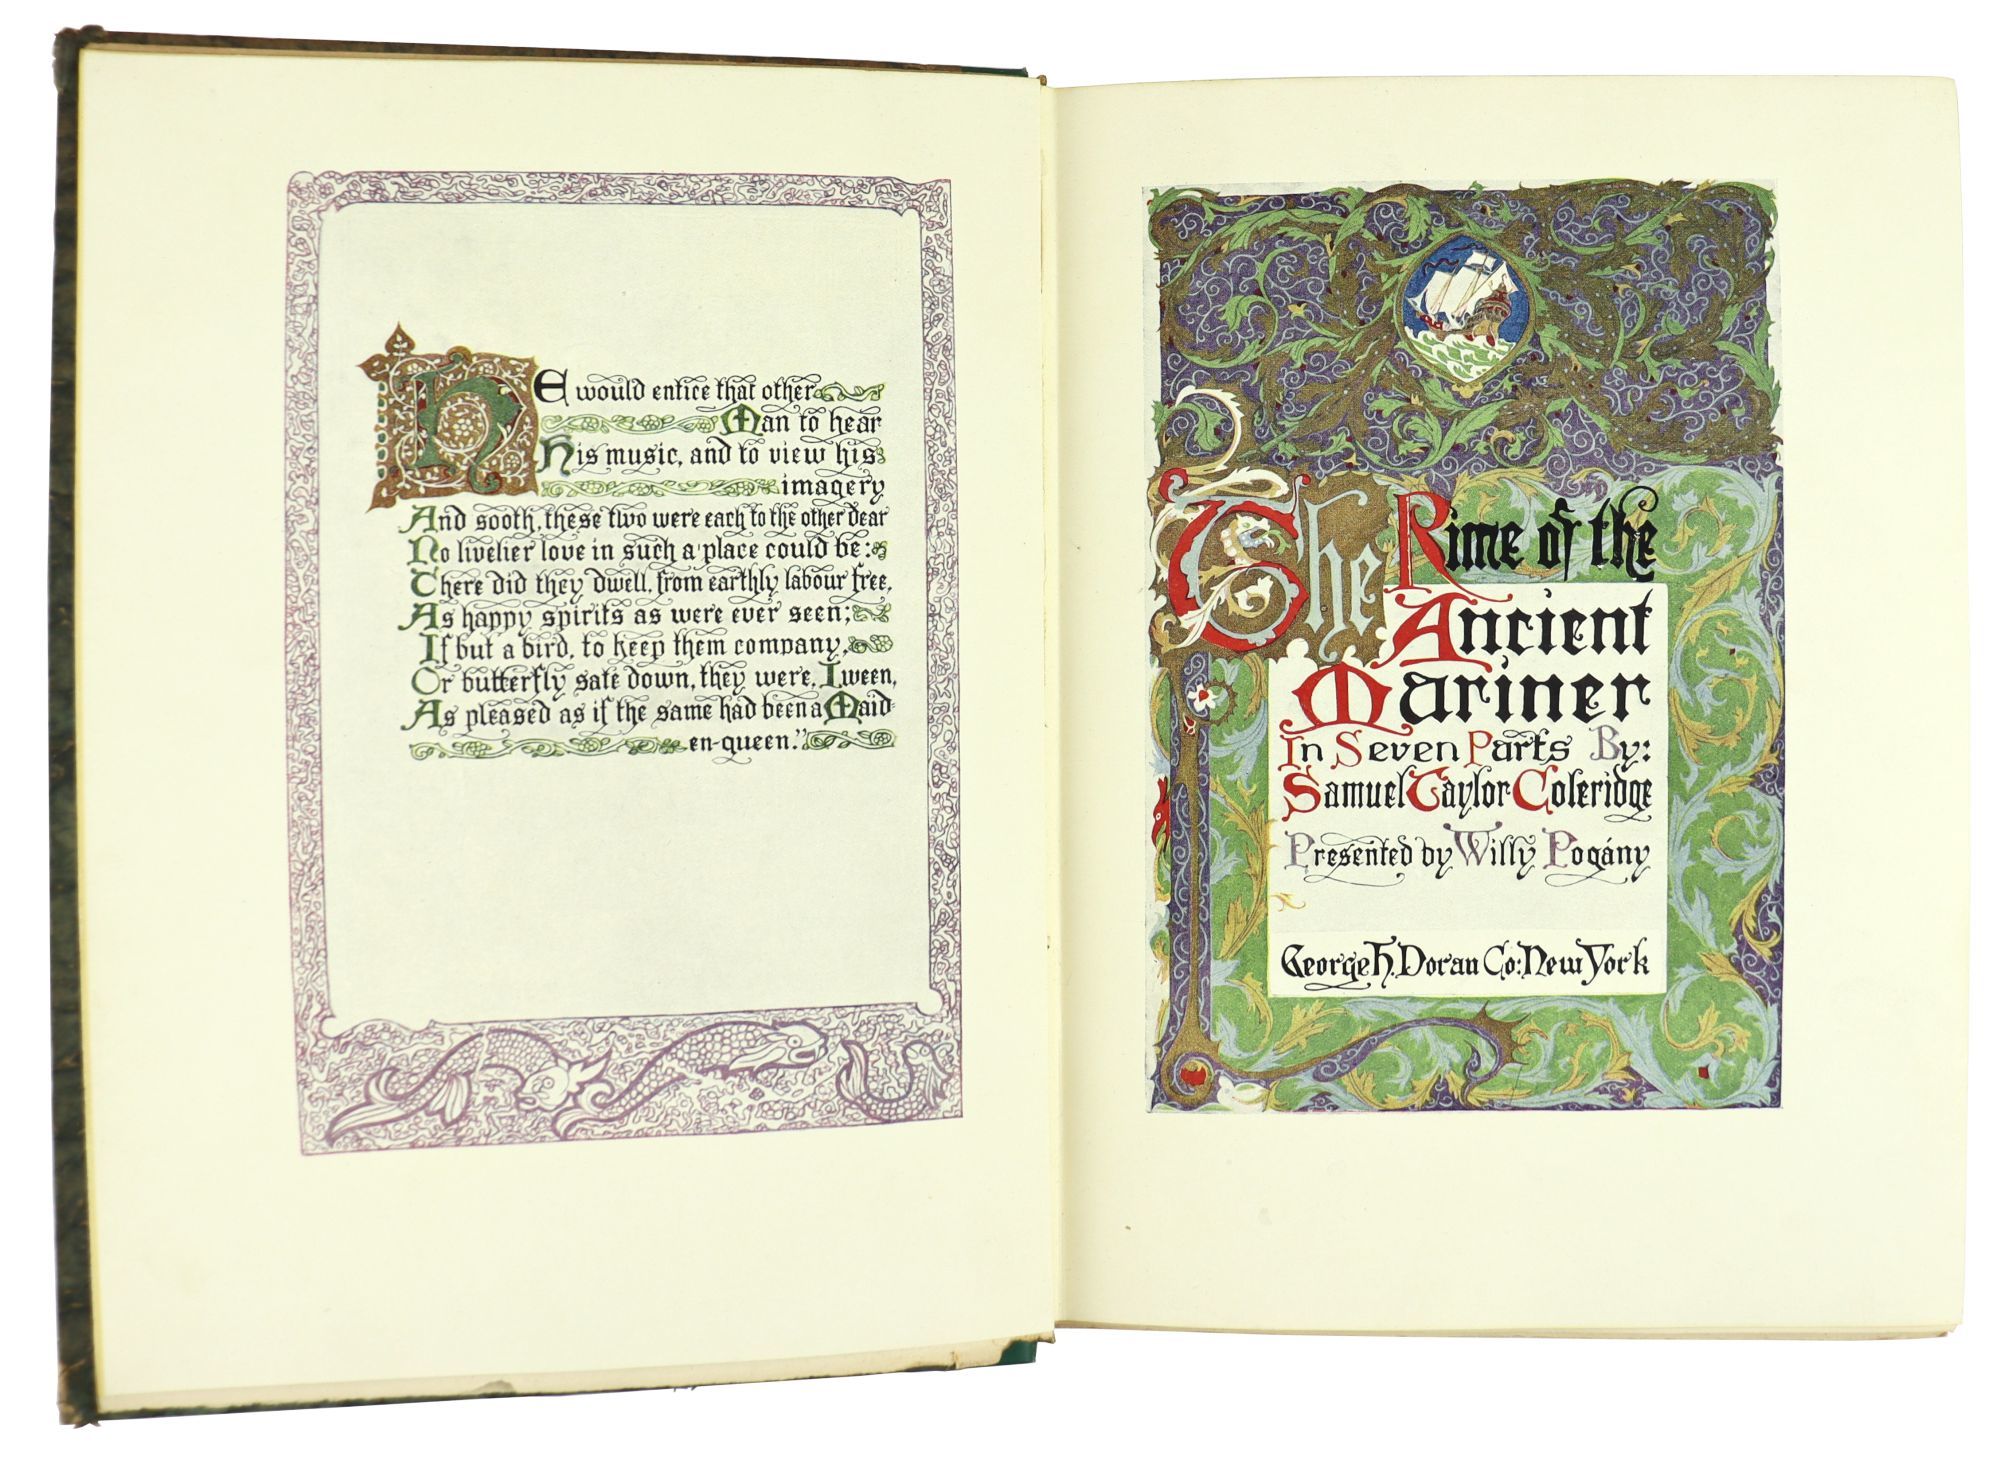 HE would entice that other
Man to hear
his music, and to view his
imagery
And sooth, these two were each to the other dear
No livelier love in such a place could be:
There did they dwell, from earthly labour free,
As happy spirits as were ever seen;
If but a bird, to keep them company,
Or butterfly sate down, they were, I ween,
As pleased as if the same had been a Maid-
en-queen."
The Rime of the
Ancient
Mariner
In Seven Parts By:
Samuel Taylor Coleridge
Presented by Willy Pogány
George H. Doran Co: New York